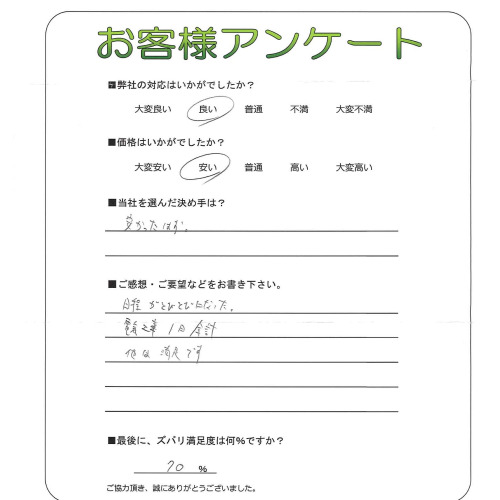 お客様アンケート
■弊社の対応はいかがでしたか？
大変良い 良い 普通 不満 大変不満
■価格はいかがでしたか？
大変安い 安い 普通 高い 大変高い
■当社を選んだ決め手は？
安かったはず。
■ご感想・ご要望などをお書き下さい。
日程がとびとびになった。
1日
他は満足です
■最後に、ズバリ満足度は何%ですか？
70 %
ご協力頂き、誠にありがとうございました。